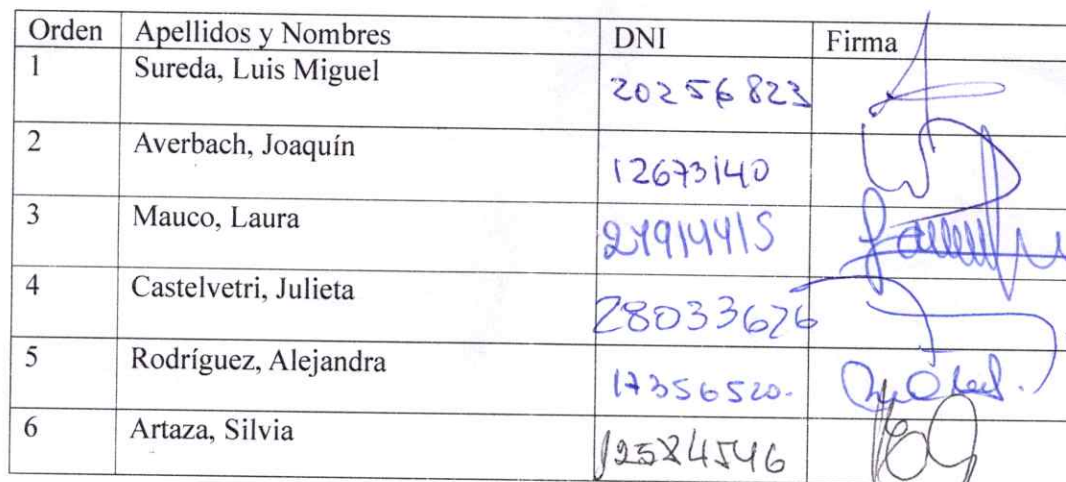 Orden Apellidos y Nombres DNI Firma
1 Sureda, Luis Miguel 20256823
2 Averbach, Joaquín 12673140
3 Mauco, Laura
4 Castelvetri, Julieta 28033626
5 Rodríguez, Alejandra 17356520.
6 Artaza, Silvia